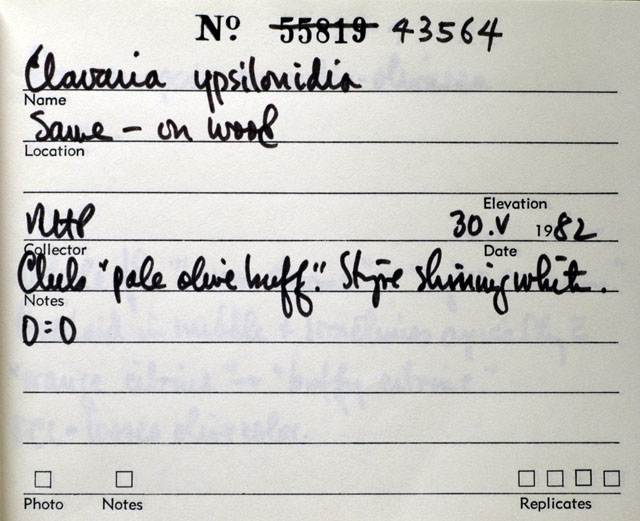 Nº 55819 43564
Clavaria ypsilonidia
Name
Same - on wood
Location
Elevation
RHP 30.V 1982
Collector Date
Clubs "pale olive buff." Stipe shining white.
Notes
O = O
Photo Notes Replicates